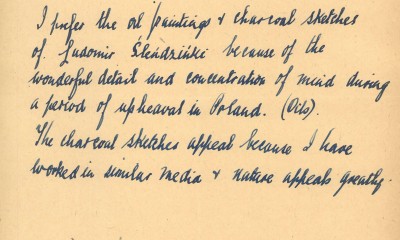 I prefer the oil paintings & charcoal sketches
of Ludomir Śleńdziński because of the
wonderful detail and concentration of mind during
a period of upheaval in Poland. (Oils).
The charcoal sketches appeal because I have
worked in similar media & nature appeals greatly.